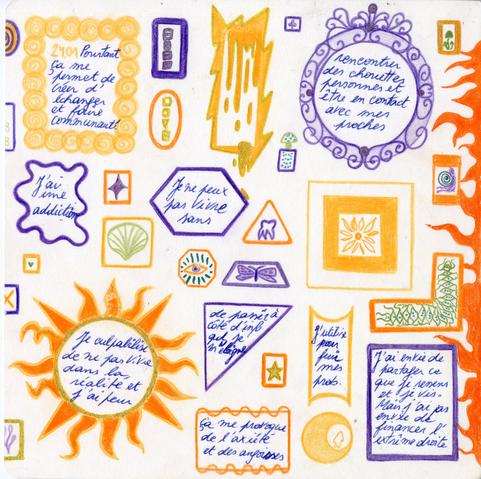 2401 Pourtant
ça me
permet de
créer d'
échanger
et faire
communauté
rencontrer
des chouettes
personnes et
être en contact
avec mes
proches
J'ai
une
addiction
Je ne peux
pas vivre
sans
Je culpabilise
de ne pas vivre
dans la
réalité et
j'ai peur
de passer à
côté d'inf
que je
m'éloigne
J'utilise
pour
fuir
mes
prob.
J'ai envie de
partager ce
que je ressens
et je vis.
Mais j'ai pas
envie de
financer l'
extrême droite
ça me provoque
de l'anxiété
et des angoisses